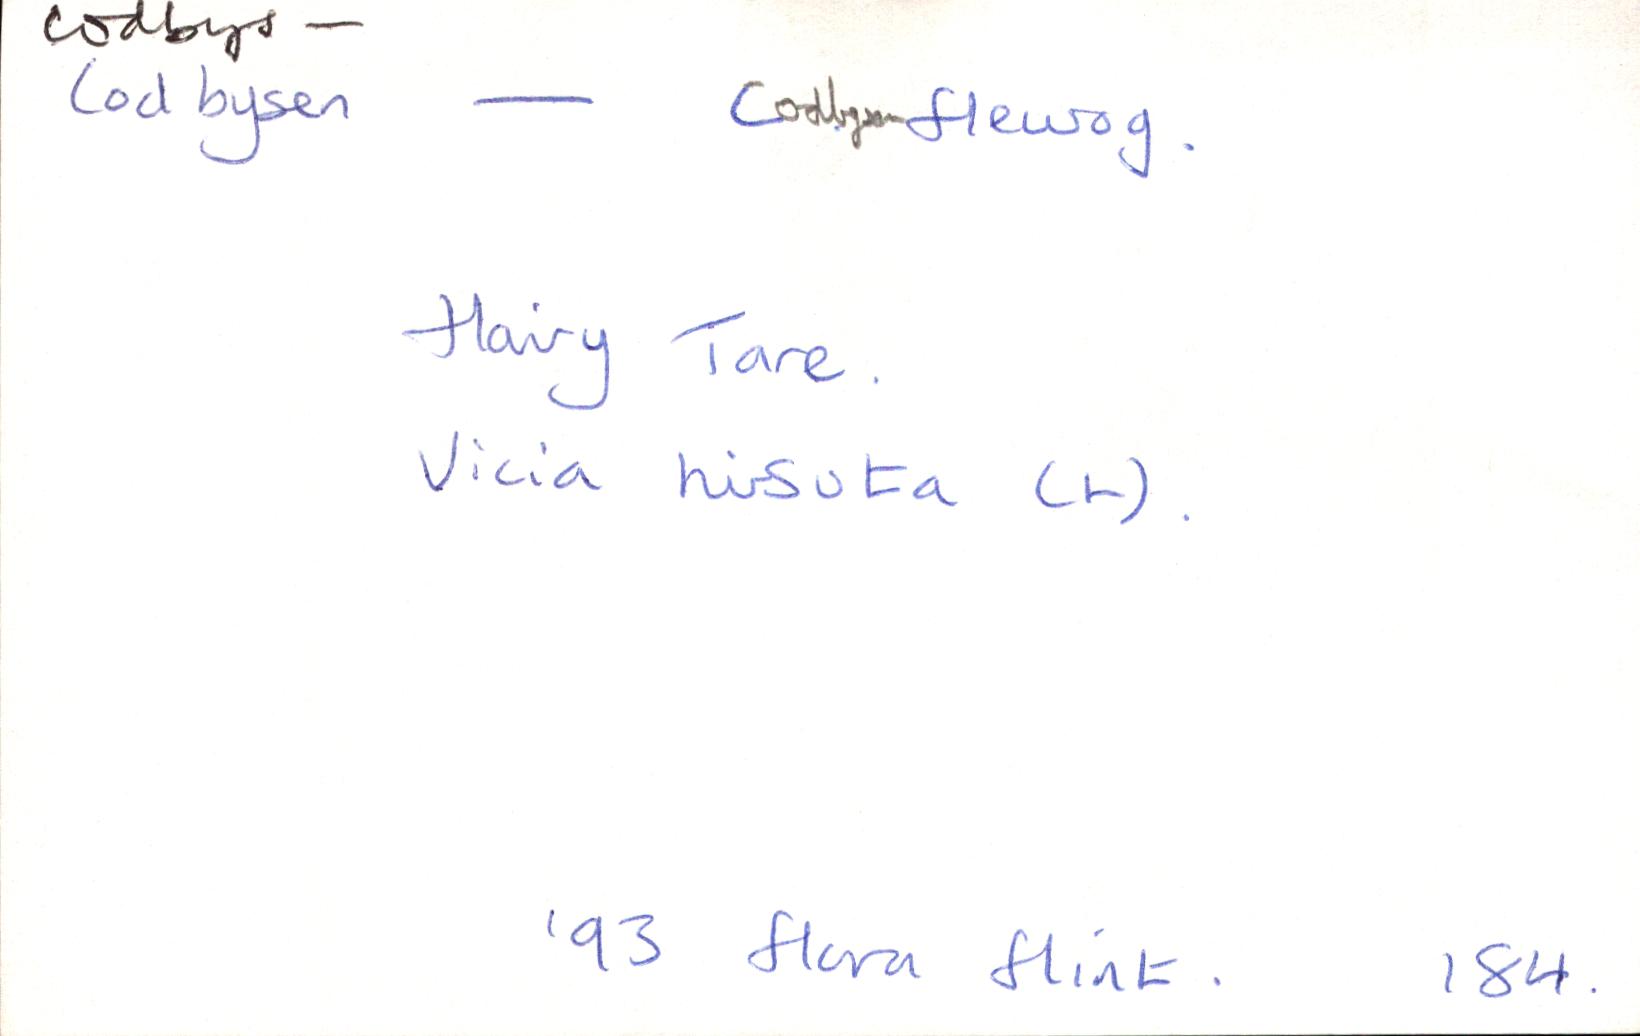 codbys —
Codbysen — Codbysen flewog.
Hairy Tare.
Vicia hirsuta (L).
'93 flora flint. 184.